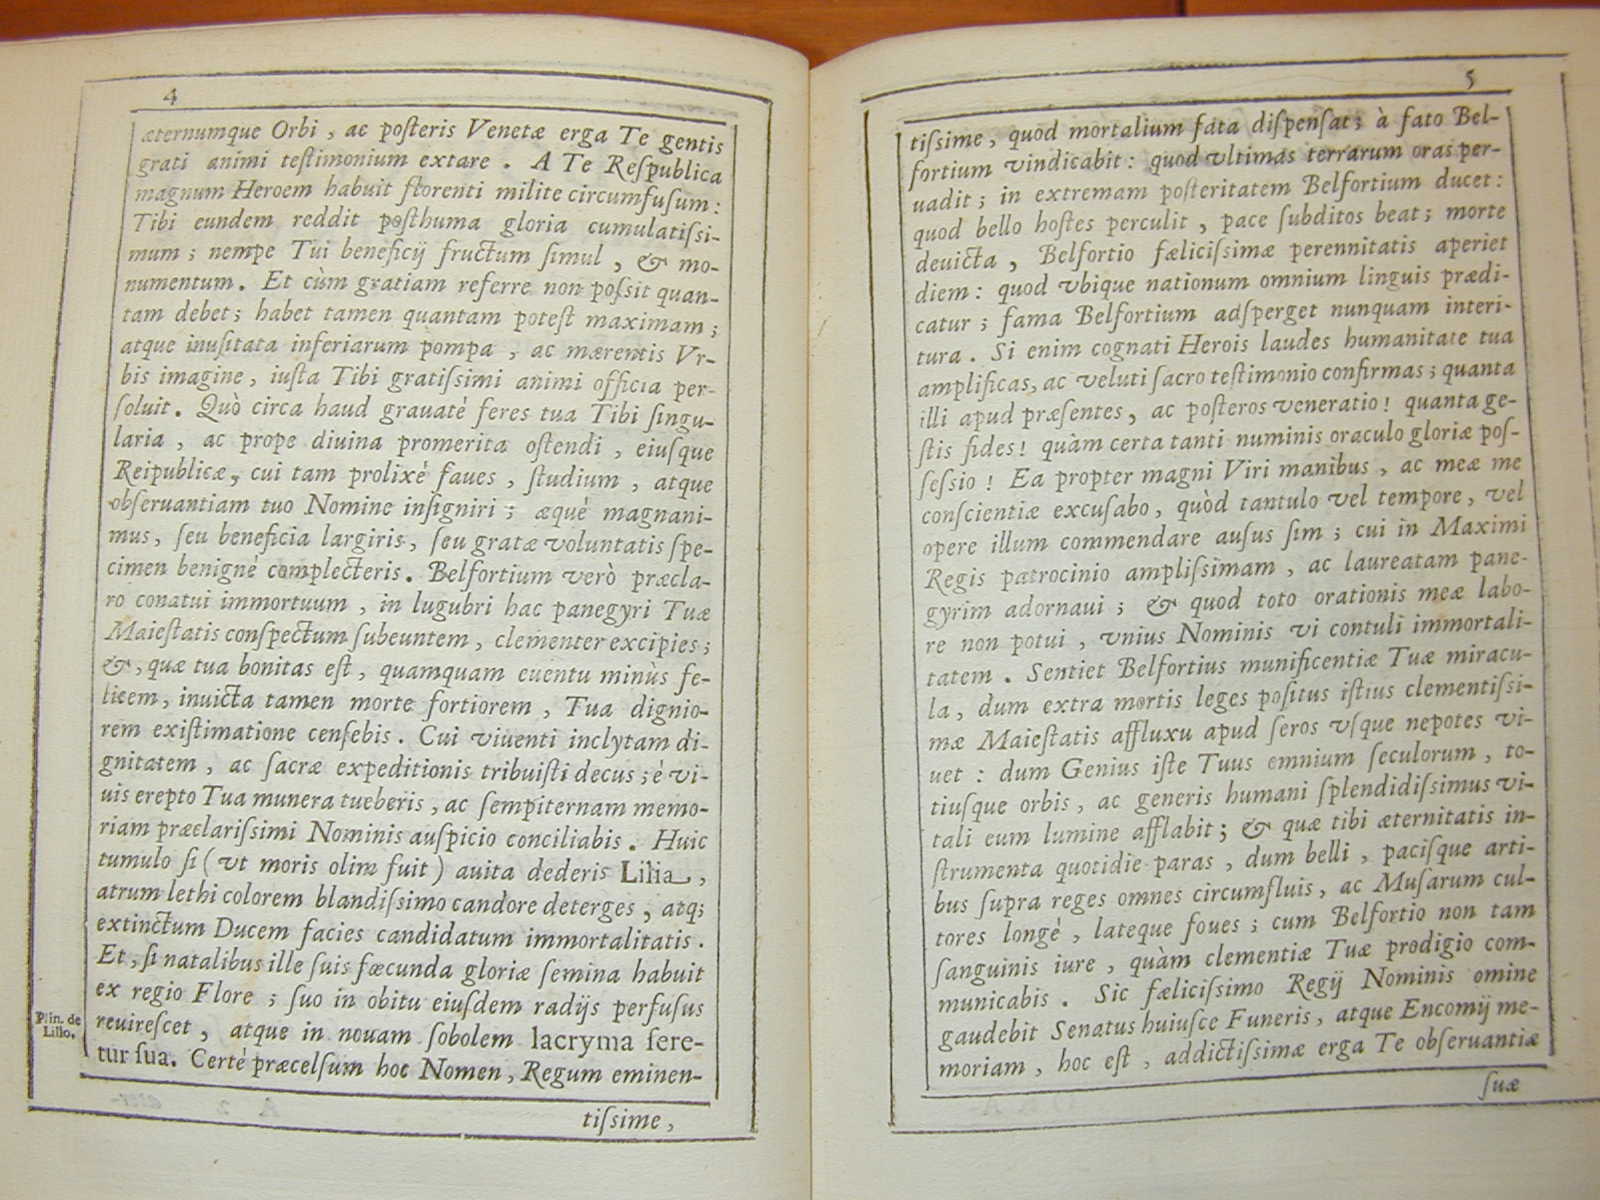 4
æternumque Orbi, ac poſteris Venetæ erga Te gentis
grati animi teſtimonium extare. A Te Reſpublica
magnum Heroem habuit florenti milite circumfuſum:
Tibi eundem reddit poſthuma gloria cumulatiſsi-
mum; nempe Tui beneficij fructum ſimul, & mo-
numentum. Et cùm gratiam referre non poſsit quan-
tam debet; habet tamen quantam poteſt maximam;
atque inuſitata inferiarum pompa, ac mærentis Vr-
bis imagine, iuſta Tibi gratiſsimi animi officia per-
ſoluit. Quò circa haud grauatè feres tua Tibi ſingu-
laria, ac prope diuina promerita oſtendi, eiuſque
Reipublicæ, cui tam prolixè faues, ſtudium, atque
obſeruantiam tuo Nomine inſigniri; æquè magnani-
mus, ſeu beneficia largiris, ſeu gratæ voluntatis ſpe-
cimen benignè complecteris. Belfortium verò præcla-
ro conatui immortuum, in lugubri hac panegyri Tuæ
Maieſtatis conſpectum ſubeuntem, clementer excipies;
&, quæ tua bonitas eſt, quamquam euentu minùs fe-
licem, inuicta tamen morte fortiorem, Tua dignio-
rem exiſtimatione cenſebis. Cui viuenti inclytam di-
gnitatem, ac ſacræ expeditionis tribuiſti decus; è vi-
uis erepto Tua munera tueberis, ac ſempiternam memo-
riam præclariſsimi Nominis auſpicio conciliabis. Huic
tumulo ſi (vt moris olim fuit) auita dederis Lilia,
atrum lethi colorem blandiſsimo candore deterges, atq;
extinctum Ducem facies candidatum immortalitatis.
Et, ſi natalibus ille ſuis fœcunda gloriæ ſemina habuit
ex regio Flore; ſuo in obitu eiuſdem radijs perfuſus
reuireſcet, atque in nouam ſobolem lacryma ſere-
tur ſua. Certè præcelſum hoc Nomen, Regum eminen-
Plin. de
Lilio.
tiſsime,
5
tiſsime, quod mortalium fata diſpenſat; à fato Bel-
fortium vindicabit: quod vltimas terrarum oras per-
uadit; in extremam poſteritatem Belfortium ducet:
quod bello hoſtes perculit, pace ſubditos beat; morte
deuicta, Belfortio fæliciſsimæ perennitatis aperiet
diem: quod vbique nationum omnium linguis prædi-
catur; fama Belfortium adſperget nunquam interi-
tura. Si enim cognati Herois laudes humanitate tua
amplificas, ac veluti ſacro teſtimonio confirmas; quanta
illi apud præſentes, ac poſteros veneratio! quanta ge-
ſtis fides! quàm certa tanti numinis oraculo gloriæ poſ-
ſeſsio! Ea propter magni Viri manibus, ac meæ me
conſcientiæ excuſabo, quòd tantulo vel tempore, vel
opere illum commendare auſus ſim; cui in Maximi
Regis patrocinio ampliſsimam, ac laureatam pane-
gyrim adornaui; & quod toto orationis meæ labo-
re non potui, vnius Nominis vi contuli immortali-
tatem. Sentiet Belfortius munificentiæ Tuæ miracu-
la, dum extra mortis leges poſitus iſtius clementiſsi-
mæ Maieſtatis affluxu apud ſeros vſque nepotes vi-
uet: dum Genius iſte Tuus omnium ſeculorum, to-
tiuſque orbis, ac generis humani ſplendidiſsimus vi-
tali eum lumine afflabit; & quæ tibi æternitatis in-
ſtrumenta quotidie paras, dum belli, paciſque arti-
bus ſupra reges omnes circumfluis, ac Muſarum cul-
tores longè, lateque foues; cum Belfortio non tam
ſanguinis iure, quàm clementiæ Tuæ prodigio com-
municabis. Sic fæliciſsimo Regij Nominis omine
gaudebit Senatus huiuſce Funeris, atque Encomij me-
moriam, hoc eſt, addictiſsimæ erga Te obſeruantiæ
ſuæ